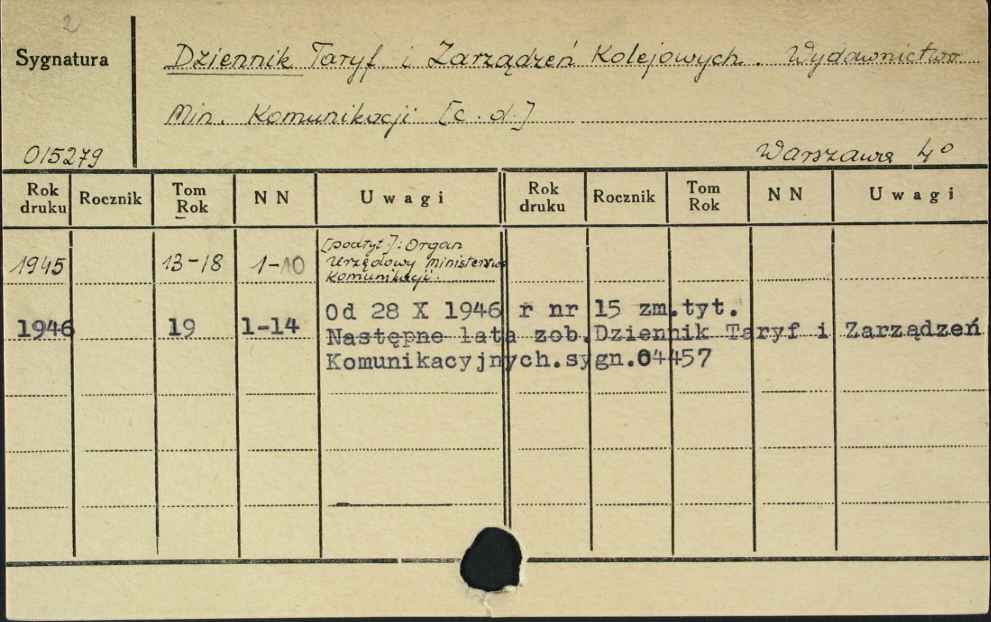 2
Sygnatura
Dziennik Taryf i Zarządzeń Kolejowych. Wydawnictwo
Min. Komunikacji [c. d.]
015279
Warszawa 4°
Rok druku Rocznik Tom Rok NN Uwagi Rok druku Rocznik Tom Rok NN Uwagi
[podtyt.]: Organ
Urzędowy Ministerstwa
Komunikacji.
1945 13-18 1-10
Od 28 X 1946 r nr 15 zm.tyt.
1946 19 1-14 Następne lata zob.Dziennik Taryf i Zarządzeń
Komunikacyjnych.sygn.04457